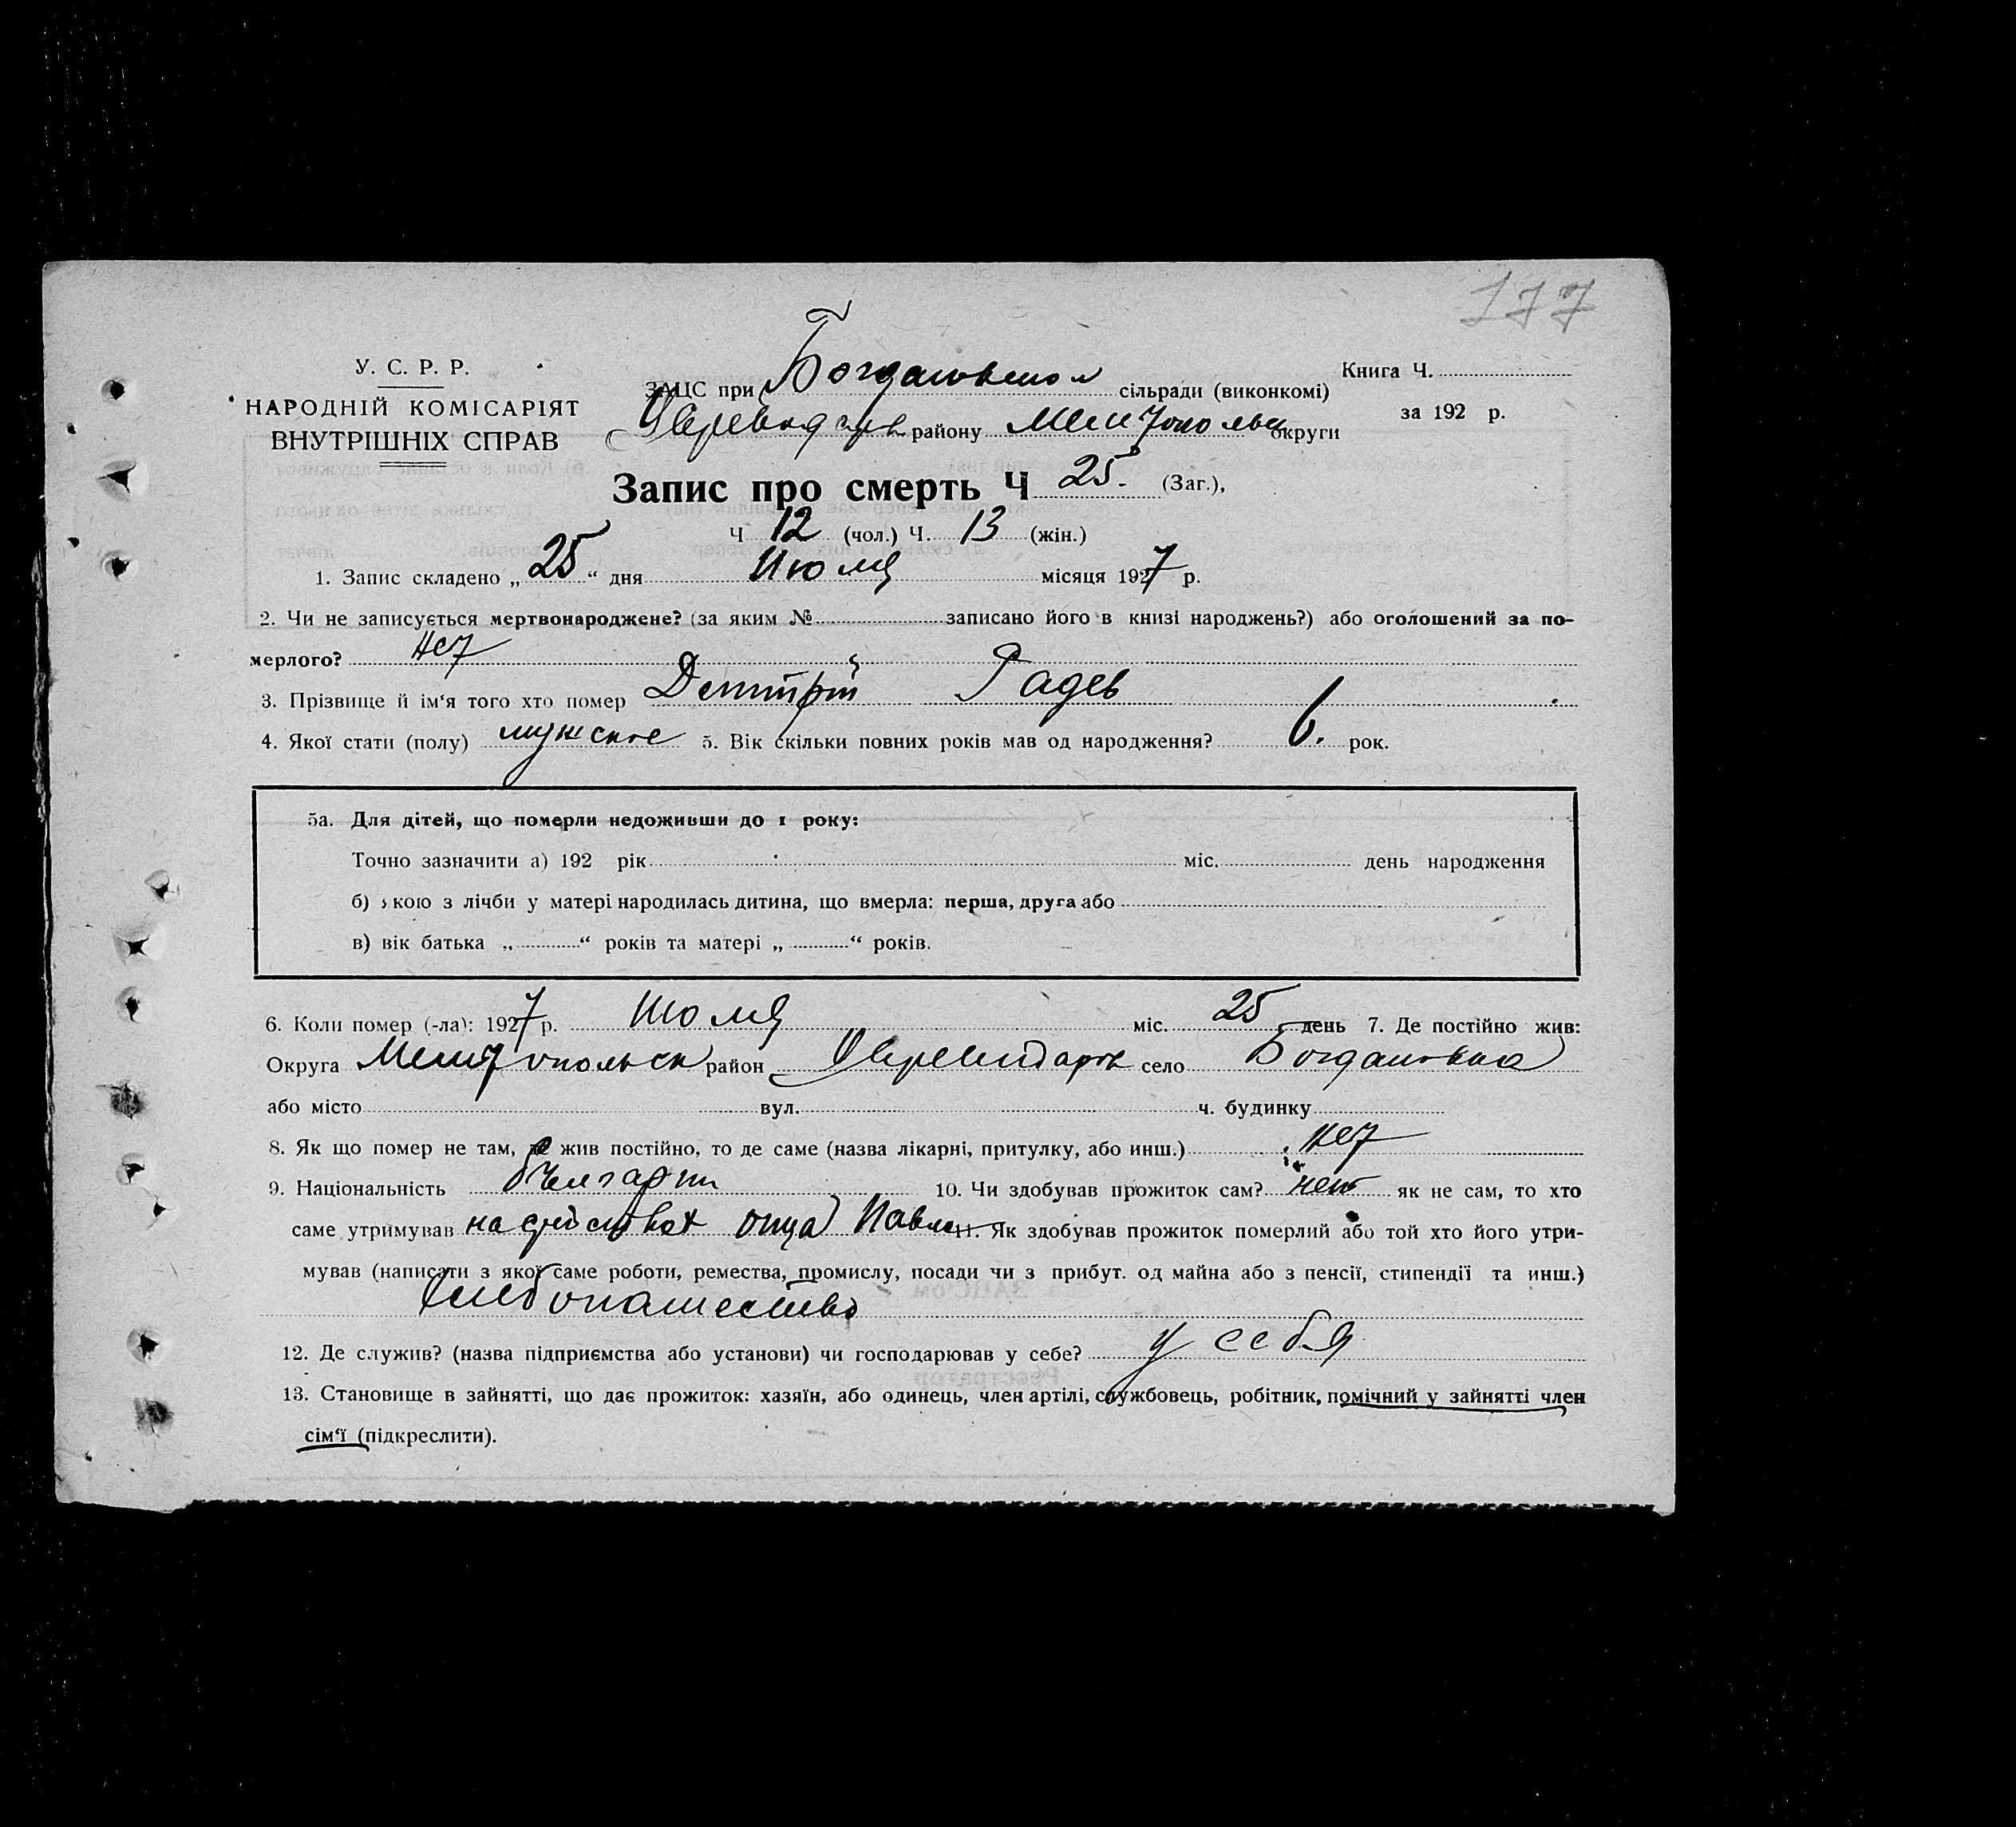 177
У. С. Р. Р.
НАРОДНІЙ КОМІСАРІЯТ
ВНУТРІШНІХ СПРАВ
ЗАЦС при Богдановской сільради (виконкомі)
району Мелитопольск округи
Книга Ч.
за 192 р.
Запис про смерть Ч 25. (Заг.),
Ч 12 (чол.) Ч. 13 (жін.)
1. Запис складено „ 25 “ дня Июля місяця 1927 р.
2. Чи не записується мертвонароджене? (за яким № записано його в книзі народжень?) або оголошений за по-
мерлого? Нет
3. Прізвище й ім‘я того хто помер Дмитрій Радев
4. Якої стати (полу) мужское 5. Вік скільки повних років мав од народження? 6. рок.
5а. Для дітей, що померли недоживши до 1 року:
Точно зазначити а) 192 рік міс. день народження
б) якою з лічби у матері народилась дитина, що вмерла: перша, друга або
в) вік батька „ “ років та матері „ “ років.
6. Коли помер (-ла): 1927 р. Июля міс. 25 день 7. Де постійно жив:
Округа Мелитопольск район село Богдановка
або місто вул. ч. будинку
8. Як що помер не там, де жив постійно, то де саме (назва лікарні, притулку, або инш.) Нет
9. Національність болгарин 10. Чи здобував прожиток сам? нет як не сам, то хто
саме утримував на средствах отца Павла 11. Як здобував прожиток померлий або той хто його утри-
мував (написати з якої саме роботи, ремества, промислу, посади чи з прибут. од майна або з пенсії, стипендії та инш.)
хлебопашество
12. Де служив? (назва підприємства або установи) чи господарював у себе? у себя
13. Становище в зайнятті, що дає прожиток: хазяїн, або одинець, член артілі, службовець, робітник, помічний у зайнятті член
сім‘ї (підкреслити).